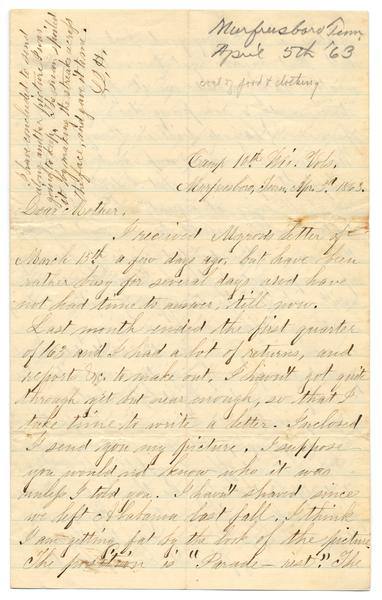 Murfreesboro Tenn.
April 5th '63
cost of food & clothing
I have concluded to send
along another picture I was
going to keep. Lt. spoiled
it by making the streaks across
the face, and gave it to me.
Camp 10th Wis. Vols.
Murfreesboro, Tenn, Apr. 5th 1863.
Dear Mother,
I received Myron's letter of
March 15th a few days ago, but have been
rather busy for several days and have
not had time to answer, till now.
Last month ended the first quarter
of '63 and I had a lot of returns, and
reports &c. to make out. I havn't got quite
through yet but near enough, so that I
take time to write a letter. Inclosed
I send you my picture. I suppose
you would not know who it was
unless I told you. I havn't shaved since
we left Alabama last fall. I think
I am getting fat by the look of the picture.
The position is "Parade-rest". The